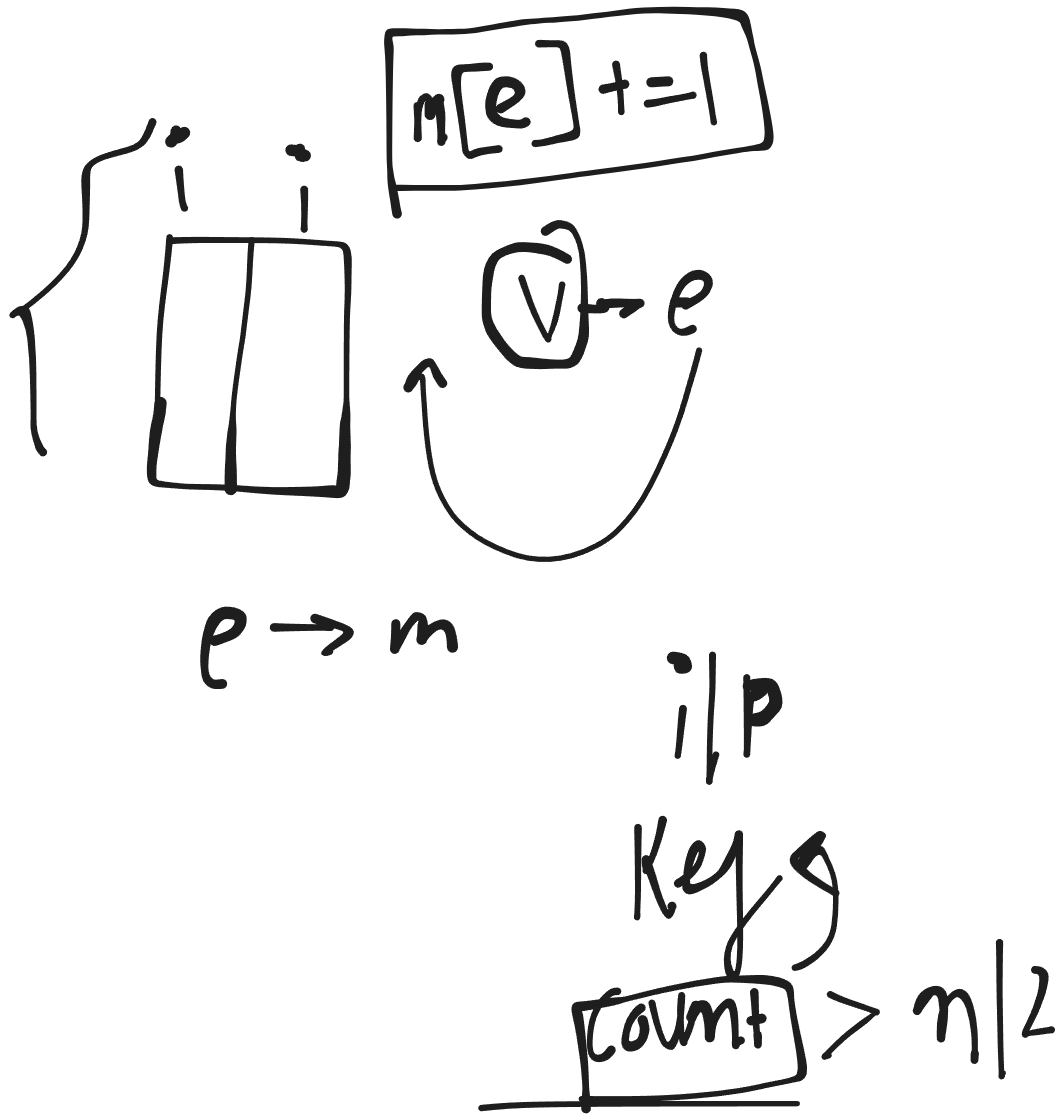 m[e] +=1
i i
V → e
e → m
i/p
Key
count > n/2